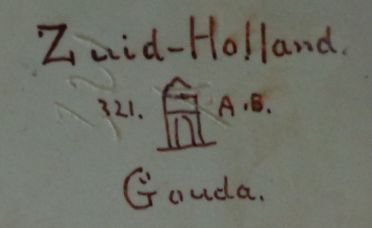 Zuid-Holland.
321. A.B.
Gouda.